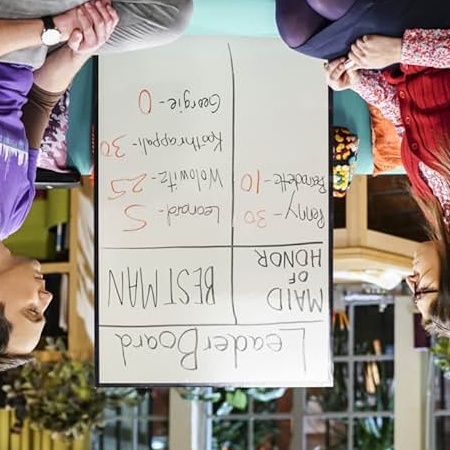 LeaderBoard
MAID OF HONOR
BEST MAN
Penny - 30
Bernadette - 10
Leonard - 5
Wolowitz - 25
Koothrappali - 30
Georgie - 0